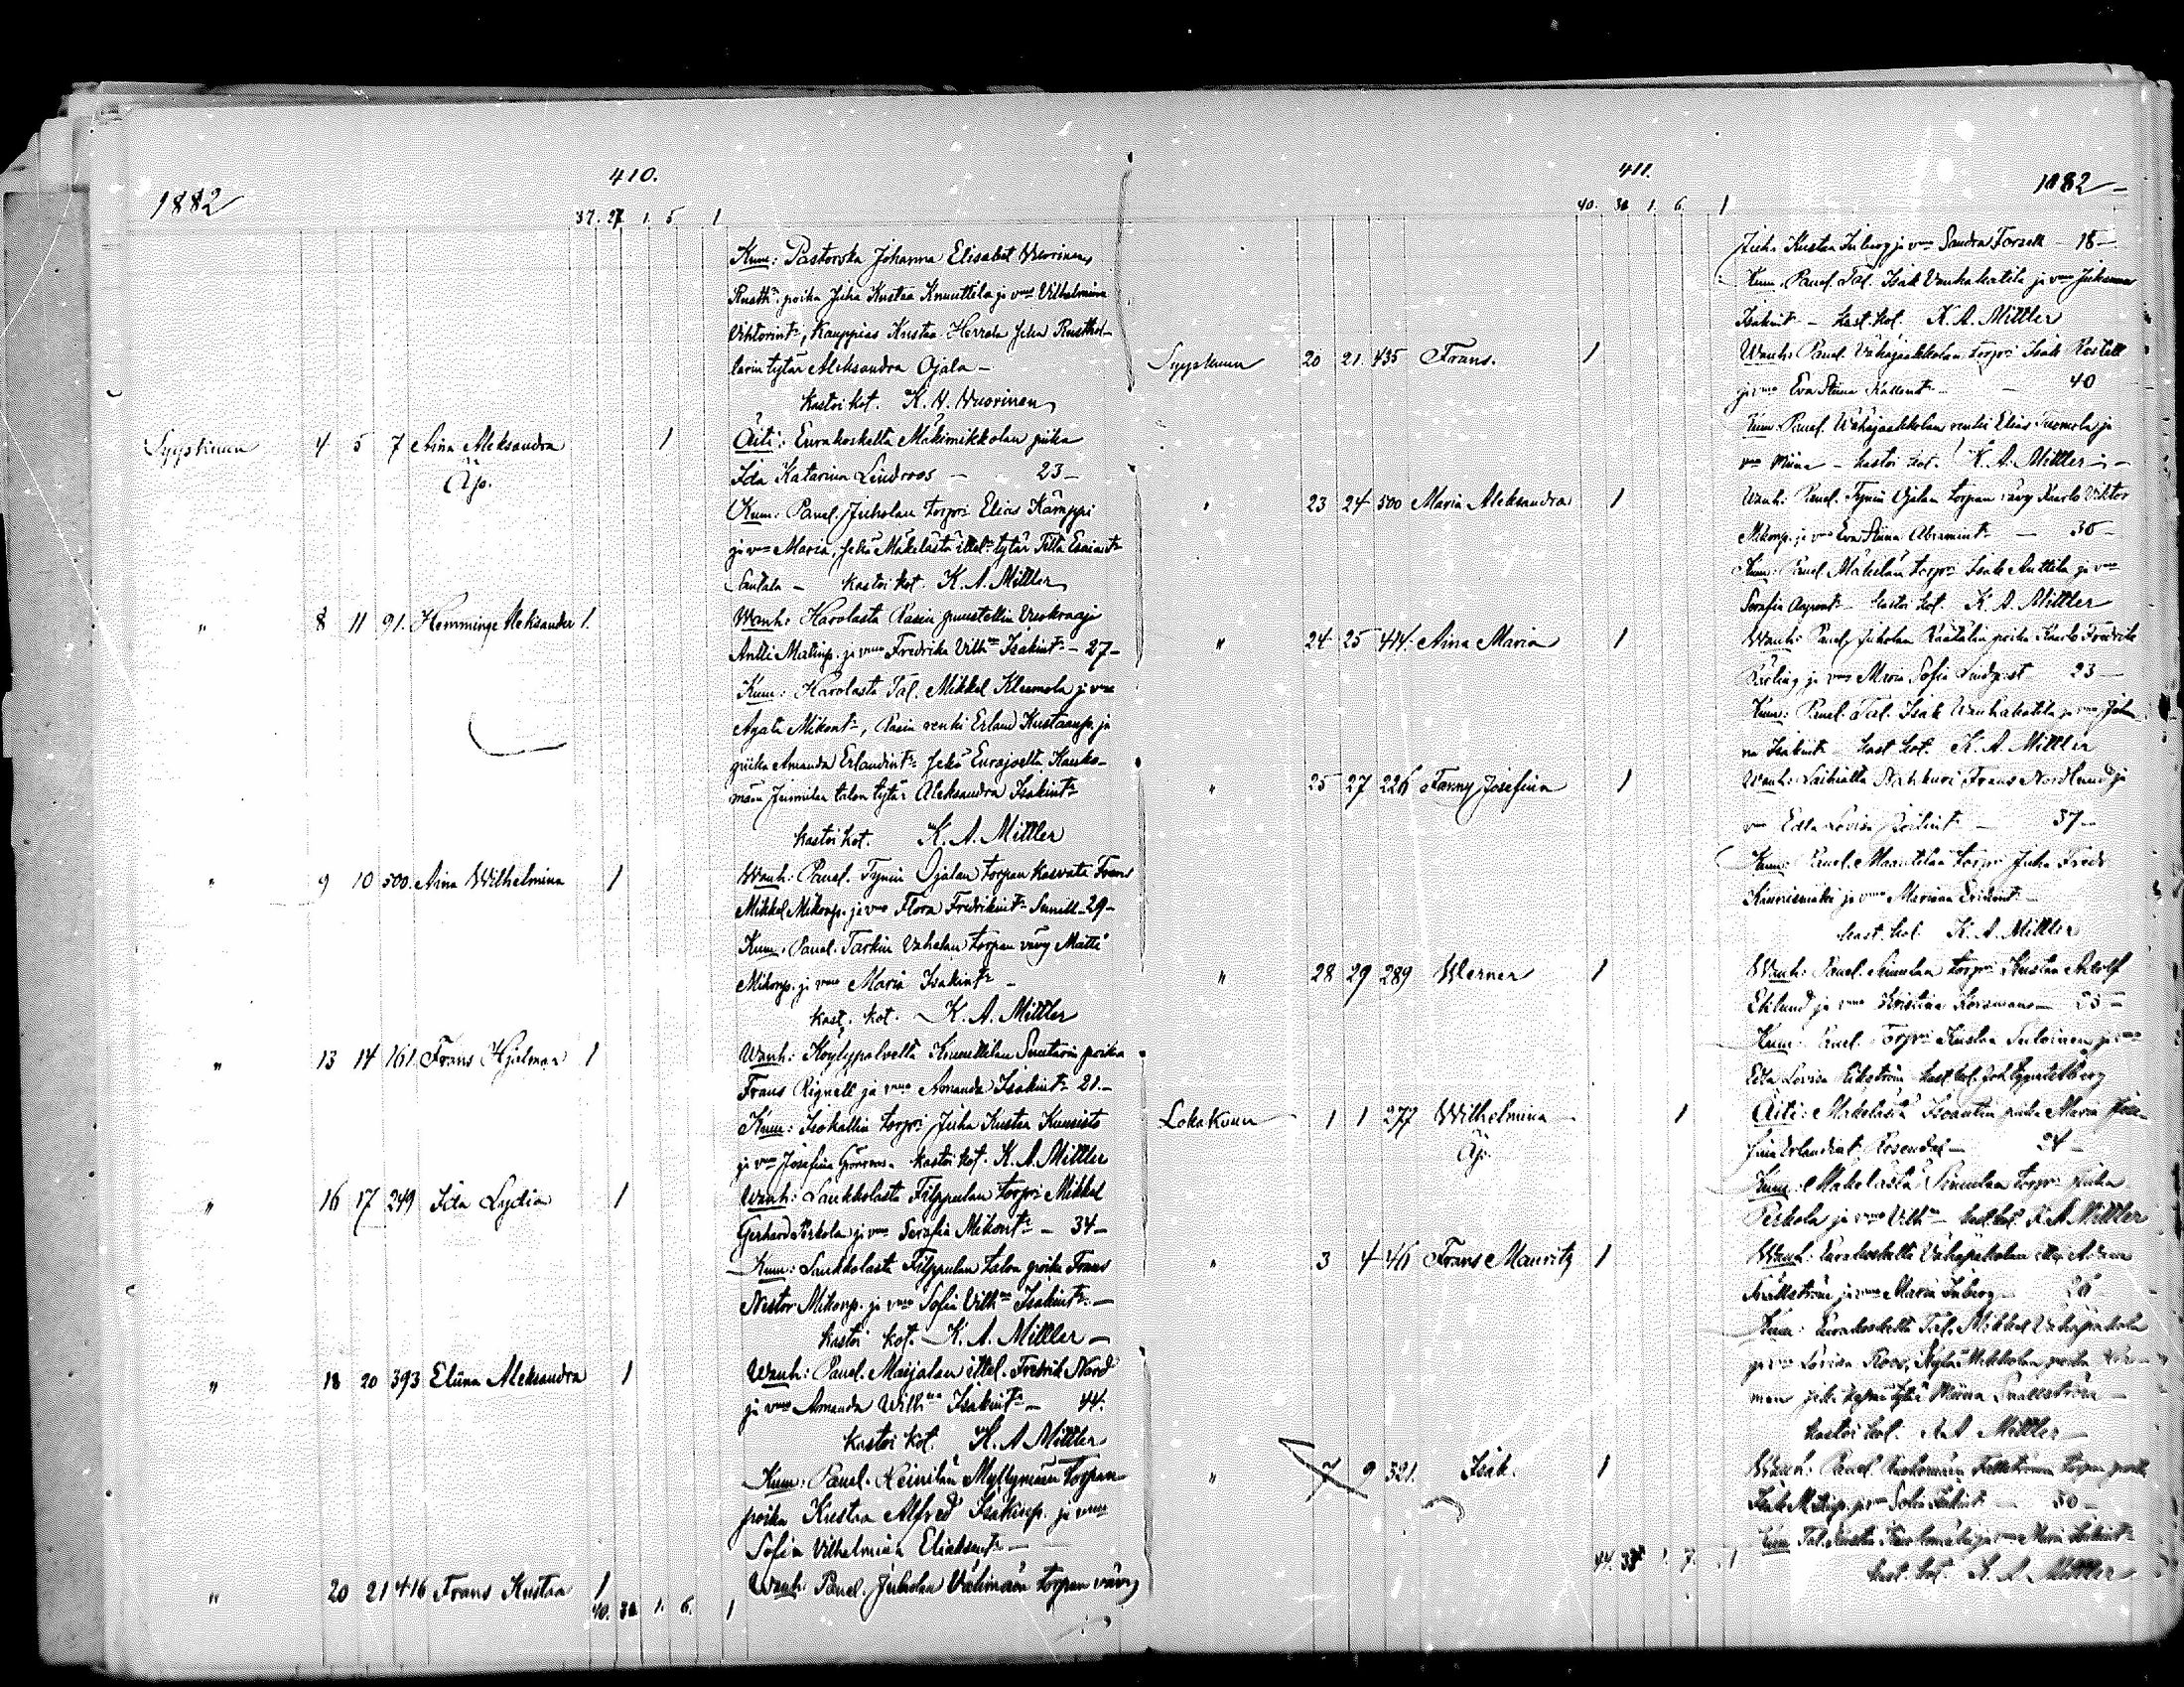 1882
410.
37. 27 1. 5 1
Kum: Pastorska Johanna Elisabet Wuorinen,
Rusth. poika Juha Kustaa Knuuttila ja vmo Vilhelmina
Vihtorint:, Kauppias Kustaa Herrala sekä Rusthol-
larin tytär Aleksandra Ojala –
kastoi kot. K. H. Wuorinen
Syyskuun 4 5 7 Aina Aleksandra 1 Äiti: Eurakoskelta Mäkimikkolan piika
Äp. Ida Katarina Lindroos – 23 –
Kum: Panel. Juholan torpri Elias Kämppi
ja vmo Maria, sekä Mäkelästä ittel. tytär Fiita Esaiant:
Santala – kastoi kot. K. A. Mittler
" 8 11 91. Hemminge Aleksander 1. Wanh: Harolasta Rasin
Antti Matinp. ja vmo Fredrika Vilhna Isakint: – 27 –
Kum: Harolasta Tal. Mikkel Kleemola ja vmo
Agata Mikont:, Rasin renki Erland Kustaanp. ja
piika Amanda Erlandint: sekä Eurajoelta Kauko-
män Junnilan talon tytär Aleksandra Isakint:
kastoi kot. K. A. Mittler
" 9 10 500. Aina Wilhelmina 1 Wanh: Panel. Tynin Ojalan torpan kasvatti Frans
Mikkel Mikonp. ja vmo Flora Fredrikint: Sunell – 29 –
Kum: Panel. Tarkin Vähälän torpan vävy Matti
Mikonp. ja vmo Maria Isakint: –
kast. kot. K. A. Mittler
" 13 14 161. Frans Hjalmar 1 Wanh: Köyliypolvelta Knuuttilan Suutarin poika
Frans Rignell ja vmo Amanda Isakint: 21. –
Kum: Isokallin torpri Juha Kustaa Kuusisto
ja vmo Josefina Grönroos. kastoi kot. K. A. Mittler
" 16 17 249 Ida Lydia 1 Wanh: Laukkolasta Filppulan torpri Mikkel
Gerhard Perkola ja vmo Serafia Mikont: – 34 –
Kum: Laukkolasta Filppulan talon poika Frans
Nestor Mikonp. ja vmo Sofia Vilhna Isakint: –
kastoi kot. K. A. Mittler –
" 18 20 393 Eliina Aleksandra 1 Wanh: Panel. Maijalan ittel. Fredrik Nord
ja vmo Amanda Wilhna Isakint: – 44.
kastoi kot. K. A. Mittler
Kum: Panel. Heinilän Myllymään torpan
poika Kustaa Alfred Isakinp. ja vmo
Sofia Vilhelmina Eliaksent: –
" 20 21 416 Frans Kustaa 1 Wanh: Panel. Juholan Välimään torpan vävy
40. 30 1. 6. 1
411.
1882 –
40. 30 1. 6. 1
Juha Kustaa Inberg ja vmo Sandra Forsell – 18 –
Kum. Panel. Tal. Isak Vanhakatila ja vmo Johanna
Isakint: – kast. kot. K. A. Mittler
Syyskuun 20 21. 435 Frans. 1 Wanh: Panel. Vähäjaakkolan torpri Isak Rostell
ja vmo Eva Stiina Kallent: – 40
Kum: Panel. Wähäjaakkolan renki Elias Tuomola ja
vmo Miina – kastoi kot. K. A. Mittler –
" 23 24 500 Maria Aleksandra 1 Wanh: Panel. Tynin Ojalan torpan vävy Kaarlo Viktor
Mikonp. ja vmo Eva Stiina Abramint: – 30 –
Kum: Panel. Mäkelän torpri Isak Anttila ja vmo
Serafia – kastoi kot. K. A. Mittler
" 24 25 414. Aina Maria 1 Wanh: Panel. Juholan Räätälin poika Kaarlo Fredrik
ja vmo Maria Sofia Lindqvist 23 –
Kum: Panel. Tal. Isak Wanhakatila ja vmo Johan-
na Isakint: – kast. kot. K. A. Mittler
" 25 27 226 Fanny Josefina 1 Wanh: Laihialta Nahkuri Frans Nordlund ja
vmo Edla Lovisa – 37 –
Kum: Panel. Maantilan torpri Juha Fredr
ja vmo Mariana –
kast. kot. K. A. Mittler
" 28 29 289 Werner 1 Wanh: Panel. Simulan torpri Kustaa Adolf
Eklund ja vmo Kristina – 33 –
Kum: Panel. Torpri Kustaa Suloinen ja vmo
Edla Lovisa Ekström kast. kot.
Lokakuun 1 1 277 Wilhelmina 1 Äiti: Mäkelästä Isoantin piika Maria Jose-
Äp. fiina Erlandint: Rosendal – 24 –
Kum: Mäkelästä Simulan torpri Juha
Perkola ja vmo Vilhna – kast. kot. K. A. Mittler
" 3 4 46 Frans Mauritz 1 Wanh: Eurakoskelta Vähäpakolan
ja vmo Maria Inberg – 26 –
Kum: Eurakoskelta Tal. Mikkel Vähäpakola
ja vmo Lovisa Roos,
sekä tytär Miina Snällström –
kastoi kot. K. A. Mittler –
" 7 9 321. Isak. 1 Wanh: Panel. torpan poika
Isak ja vmo Sofia Isakint: – 30 –
Kum: Tal. Kustaa ja vmo Maria Isakint:
kast. kot. K. A. Mittler
44. 33 1. 7. 1